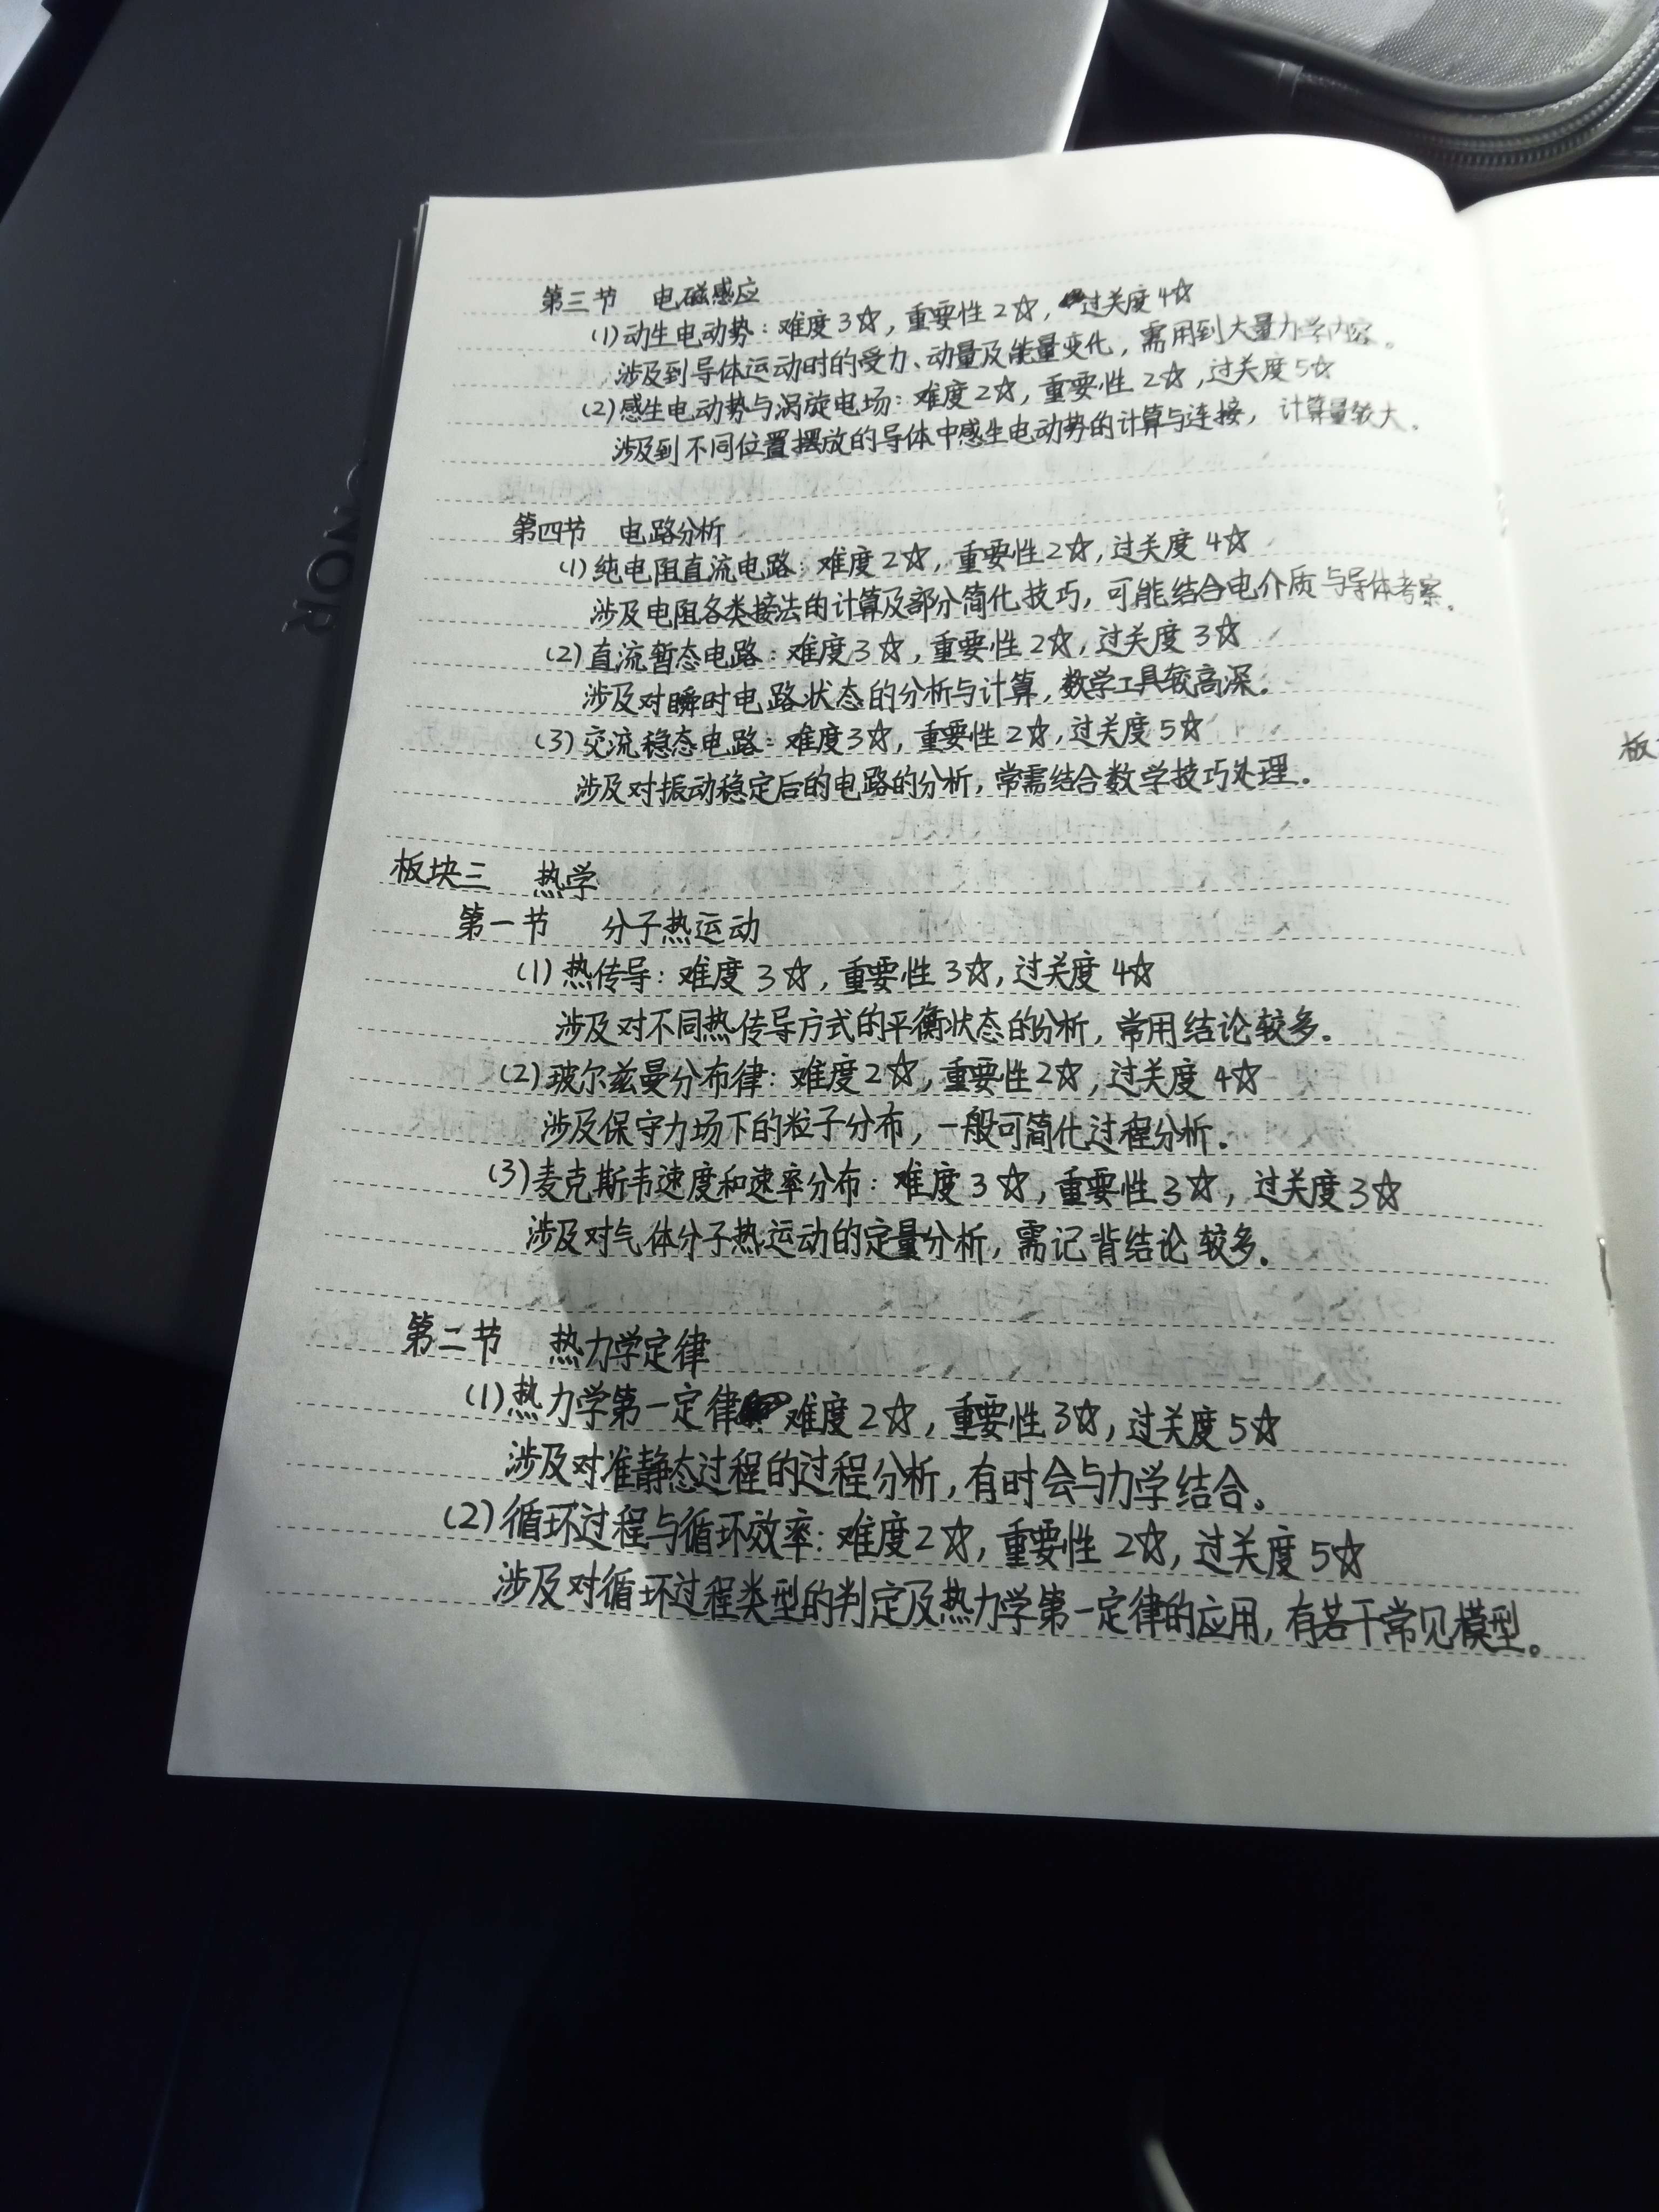 第三节 电磁感应
(1)动生电动势：难度3☆，重要性2☆，过关度4☆
涉及到导体运动时的受力、动量及能量变化，需用到大量力学内容。
(2)感生电动势与涡旋电场：难度2☆，重要性2☆，过关度5☆
涉及到不同位置摆放的导体中感生电动势的计算与连接，计算量较大。
第四节 电路分析
(1)纯电阻直流电路：难度2☆，重要性2☆，过关度4☆
涉及电阻各类接法的计算及部分简化技巧，可能结合电介质与导体考察。
(2)直流暂态电路：难度3☆，重要性2☆，过关度3☆
涉及对瞬时电路状态的分析与计算，数学工具较高深。
(3)交流稳态电路：难度3☆，重要性2☆，过关度5☆
涉及对振动稳定后的电路的分析，常需结合数学技巧处理。
板块三 热学
第一节 分子热运动
(1)热传导：难度3☆，重要性3☆，过关度4☆
涉及对不同热传导方式的平衡状态的分析，常用结论较多。
(2)玻尔兹曼分布律：难度2☆，重要性2☆，过关度4☆
涉及保守力场下的粒子分布，一般可简化过程分析。
(3)麦克斯韦速度和速率分布：难度3☆，重要性3☆，过关度3☆
涉及对气体分子热运动的定量分析，需记背结论较多。
第二节 热力学定律
(1)热力学第一定律 难度2☆，重要性3☆，过关度5☆
涉及对准静态过程的过程分析，有时会与力学结合。
(2)循环过程与循环效率：难度2☆，重要性2☆，过关度5☆
涉及对循环过程类型的判定及热力学第一定律的应用，有若干常见模型。
板
NOR